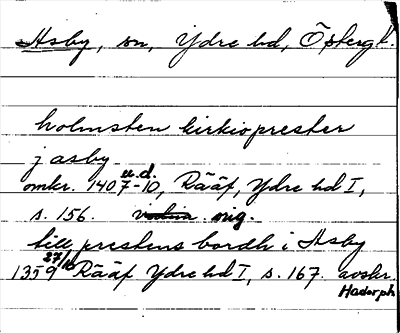 Asby, sn, Ydre hd, Östergt.
holmsten kirkioprester
j asby
u.d.
omkr. 1407-10, Rääf, Ydre hd I,
s. 156. orig.
till prestens bordh i Asby
1359 27/10 Rääf Ydre hd I, s. 167. avskr.
Hadorph